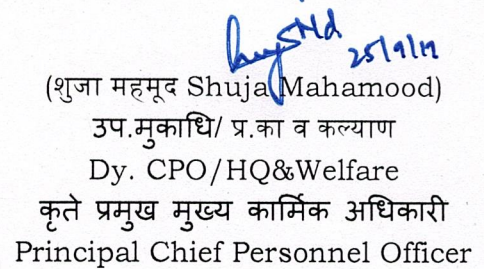 25/9/19
(शुजा महमूद Shuja Mahamood)
उप.मुकाधि/ प्र.का व कल्याण
Dy. CPO/HQ&Welfare
कृते प्रमुख मुख्य कार्मिक अधिकारी
Principal Chief Personnel Officer